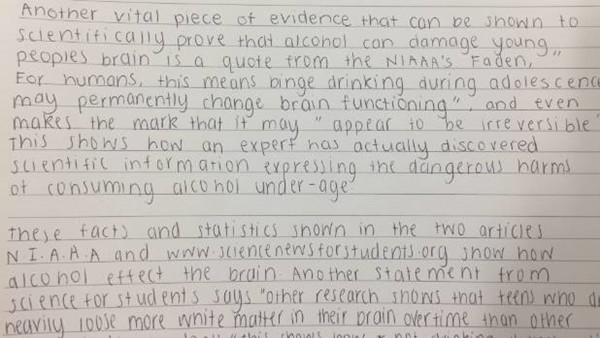 Another vital piece of evidence that can be shown to
scientifically prove that alcohol can damage young
peoples brain is a quote from the NIAAA's Faden, "
For humans, this means binge drinking during adolescence
may permanently change brain functioning", and even
makes the mark that it may "appear to be irreversible"
This shows how an expert has actually discovered
scientific information expressing the dangerous harms
of consuming alcohol under-age.
These facts and statistics shown in the two articles
N.I.A.A.A and www.sciencenewsforstudents.org show how
alcohol effect the brain. Another statement from
science for students says "other research shows that teens who
heavily loose more white matter in their brain overtime than other